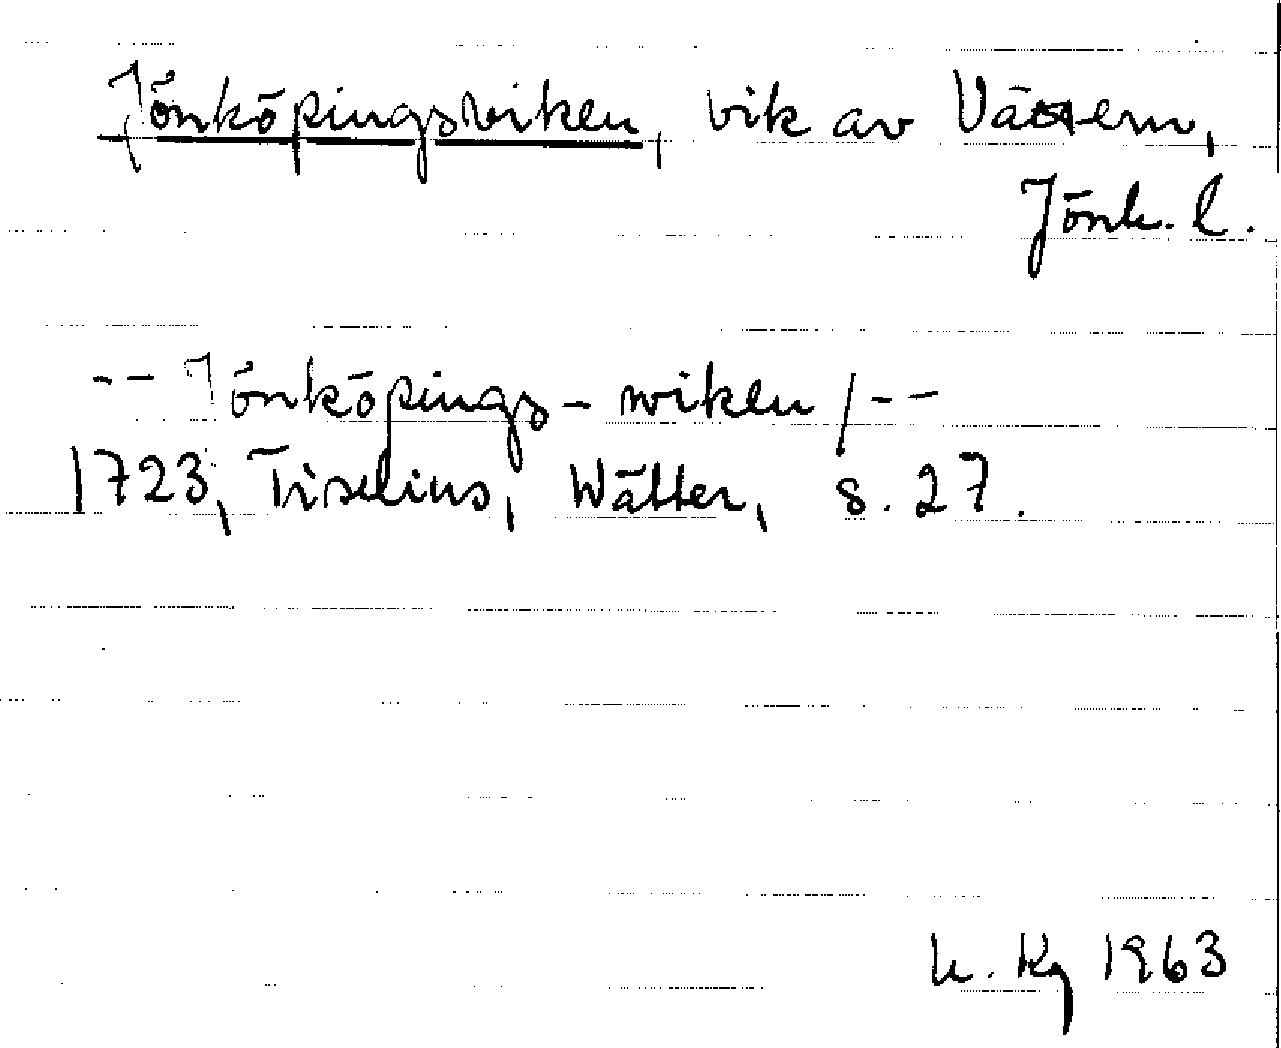 Jönköpingsviken, vik av Vättern,
Jönk. l.
-- Jönköpings-wiken /--
1723, Tiselius, Wätter, s. 27.
K. Kg 1963